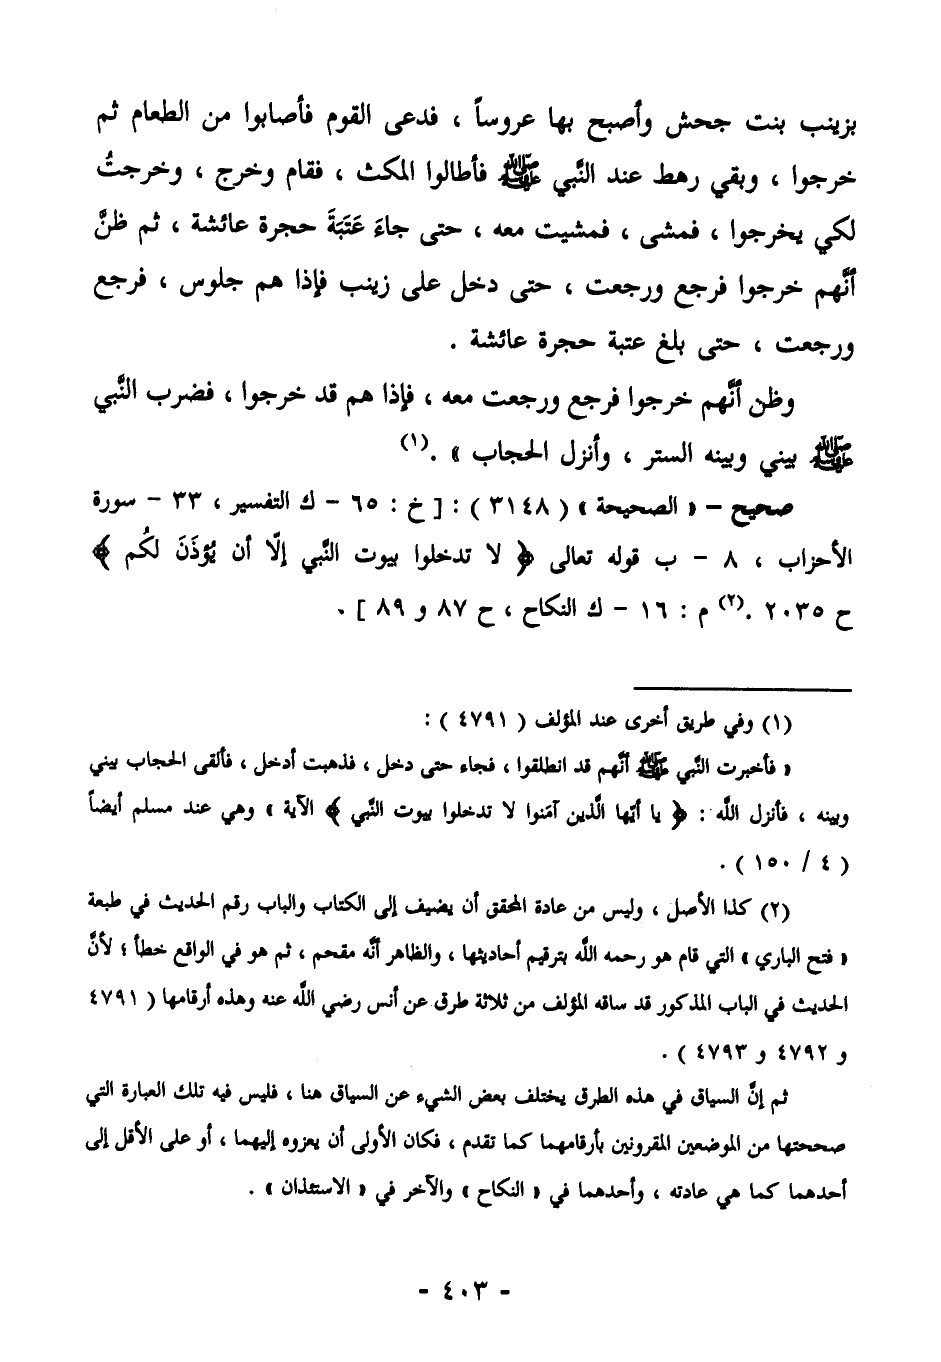 بزينب بنت جحش وأصبح بها عروساً ، فدعى القوم فأصابوا من الطعام ثم
خرجوا ، وبقي رهط عند النَّبي ﷺ فأطالوا المكث ، فقام وخرج ، وخرجتُ
لكي يخرجوا ، فمشى ، فمشيت معه ، حتى جاءَ عَتَبَةَ حجرة عائشة ، ثم ظنَّ
أنَّهم خرجوا فرجع ورجعت ، حتى دخل على زينب فإذا هم جلوس ، فرجع
ورجعت ، حتى بلغ عتبة حجرة عائشة .
وظن أنَّهم خرجوا فرجع ورجعت معه ، فإذا هم قد خرجوا ، فضرب النَّبي
ﷺ بيني وبينه الستر ، وأنزل الحجاب » .(١)
صحيح – « الصحيحة » ( ٣١٤٨ ) : [ خ : ٦٥ – ك التفسير ، ٣٣ – سورة
الأحزاب ، ٨ – ب قوله تعالى ﴿ لا تدخلوا بيوت النَّبي إلّا أن يُؤذَنَ لكُم ﴾
ح ٢٠٣٥ .(٢) م : ١٦ – ك النكاح ، ح ٨٧ و ٨٩ ] .
(١) وفي طريق أخرى عند المؤلف ( ٤٧٩١ ) :
« فأخبرت النَّبي ﷺ أنَّهم قد انطلقوا ، فجاء حتى دخل ، فذهبت أدخل ، فألقى الحجاب بيني
وبينه ، فأنزل اللَّه : ﴿ يا أيّها الَّذين آمَنوا لا تدخلوا بيوت النَّبي ﴾ الآية » وهي عند مسلم أيضاً
( ٤ / ١٥٠ ) .
(٢) كذا الأصل ، وليس من عادة المحقق أن يضيف إلى الكتاب والباب رقم الحديث في طبعة
« فتح الباري » التي قام هو رحمه اللَّه بترقيم أحاديثها ، والظاهر أنَّه مقحم ، ثم هو في الواقع خطأ ؛ لأنَّ
الحديث في الباب المذكور قد ساقه المؤلف من ثلاثة طرق عن أنس رضي اللَّه عنه وهذه أرقامها ( ٤٧٩١
و ٤٧٩٢ و ٤٧٩٣ ) .
ثم إنَّ السياق في هذه الطرق يختلف بعض الشيء عن السياق هنا ، فليس فيه تلك العبارة التي
صححتها من الموضعين المقرونين بأرقامهما كما تقدم ، فكان الأولى أن يعزوه إليهما ، أو على الأقل إلى
أحدهما كما هي عادته ، وأحدهما في « النكاح » والآخر في « الاستئذان » .
- ٤٠٣ -